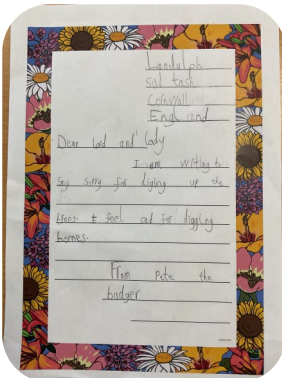 Landulph
Sal tash
Cornwall
Engl and
Dear lord and lady
I am witing to
Say sorry for diging up the
trees. I feel sad for diggĩng
homes.
From Pete the
badger